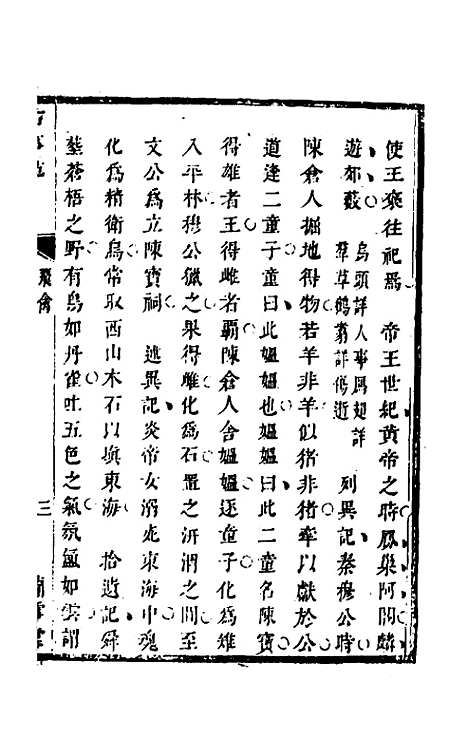 使王褒往祀焉　帝王世紀黃帝之時鳳巢阿閣麟
遊郊藪　烏頭詳人事鳳翅詳
羣草鶴蓊詳傷逝　列異記秦穆公時
陳倉人掘地得物若羊非羊似豬非豬牽以獻於公
道逢二童子童曰此媼媼也媼媼曰此二童名陳寶
得雄者王得雌者霸陳倉人舍媼媼逐童子化為雉
入平林穆公獵之果得雌化為石置之汧渭之間至
文公為立陳寶祠　述異記炎帝女溺死東海中魂
化為精衛鳥常取西山木石以填東海　拾遺記舜
葬蒼梧之野有鳥如丹雀吐五色之氣氛氳如雲謂
飛禽
三